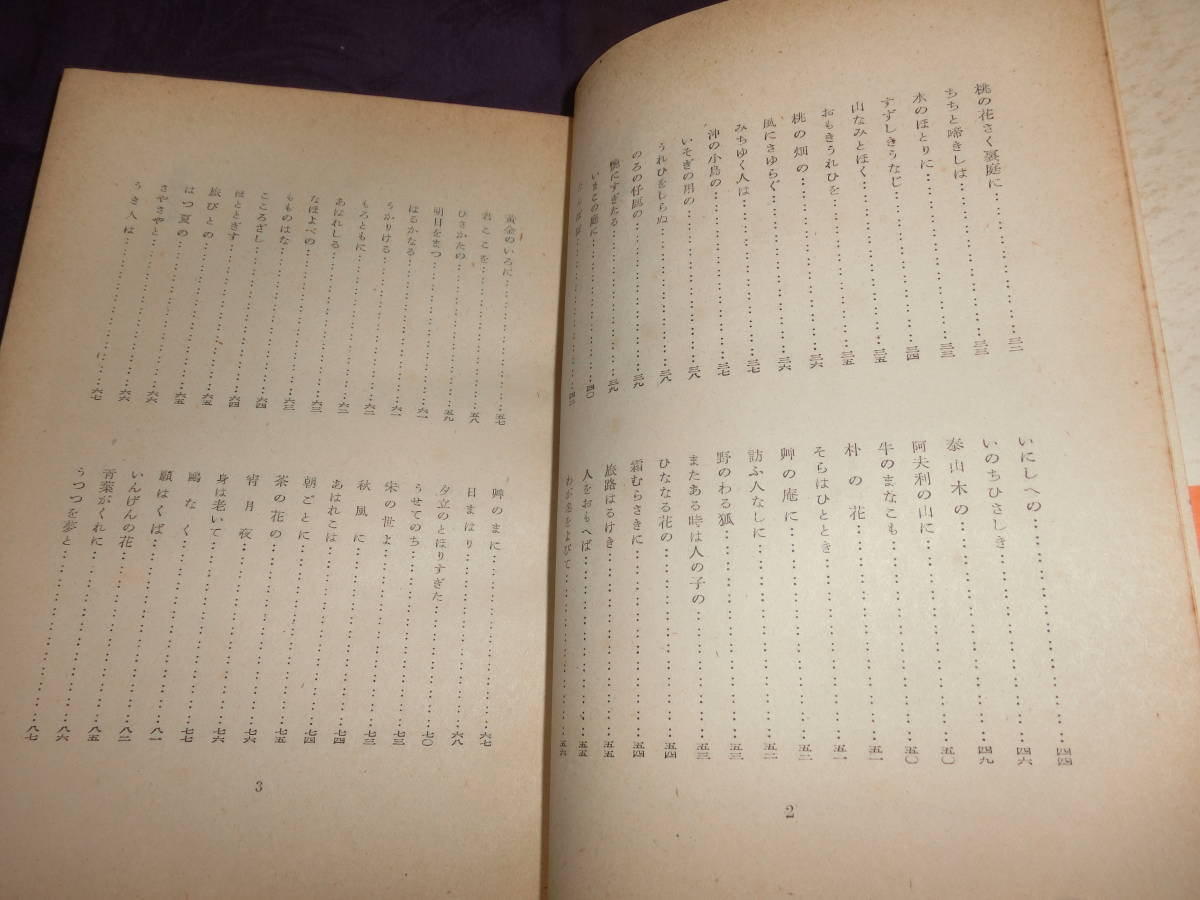 桃の花さく裏庭に……三二
ちちと啼きしは……三三
水のほとりに……三三
すずしきうなじ……三四
山なみとほく……三五
おもきうれひを……三五
桃の畑の……三六
風にさゆらぐ……三六
みちゆく人は……三七
沖の小島の……三七
いそぎの用の……三八
うれひをしらぬ……三八
のろの仔鹿の……三九
鴨にすぎたる……三九
いまこの庭に……四〇
四二
いにしへの……四四
いのちひさしき……四六
泰山木の……四九
阿夫利の山に……五〇
牛のまなこも……五〇
朴の花……五一
そらはひととき……五一
艸の庵に……五二
訪ふ人なしに……五二
野のわる狐……五三
またある時は人の子の……五三
ひななる花の……五四
霜むらさきに……五四
旅路はるけき……五五
人をおもへば……五五
わが名をよびて……五六
2
黄金のいろに……五七
君こころを……五八
ひさかたの……五九
明日をまつ……六一
はるかなる……六一
うかりける……六二
もろともに……六二
あはれしる……六三
なほよべの……六三
もものはな……六四
こころざし……六四
ほととぎす……六五
旅びとの……六五
はつ夏の……六六
さやさやと……六六
うき人は……六七
艸のまに……六七
日まはり……六八
夕立のとほりすぎた……七〇
うせてのち……七三
宋の世よ……七三
秋風に……七四
あはれこは……七四
朝ごとに……七五
茶の花の……七六
宵月夜……七六
身は老いて……七七
鷗なく……八一
願はくば……八二
いんげんの花……八五
青葉がくれに……八六
うつつを夢と……八七
3